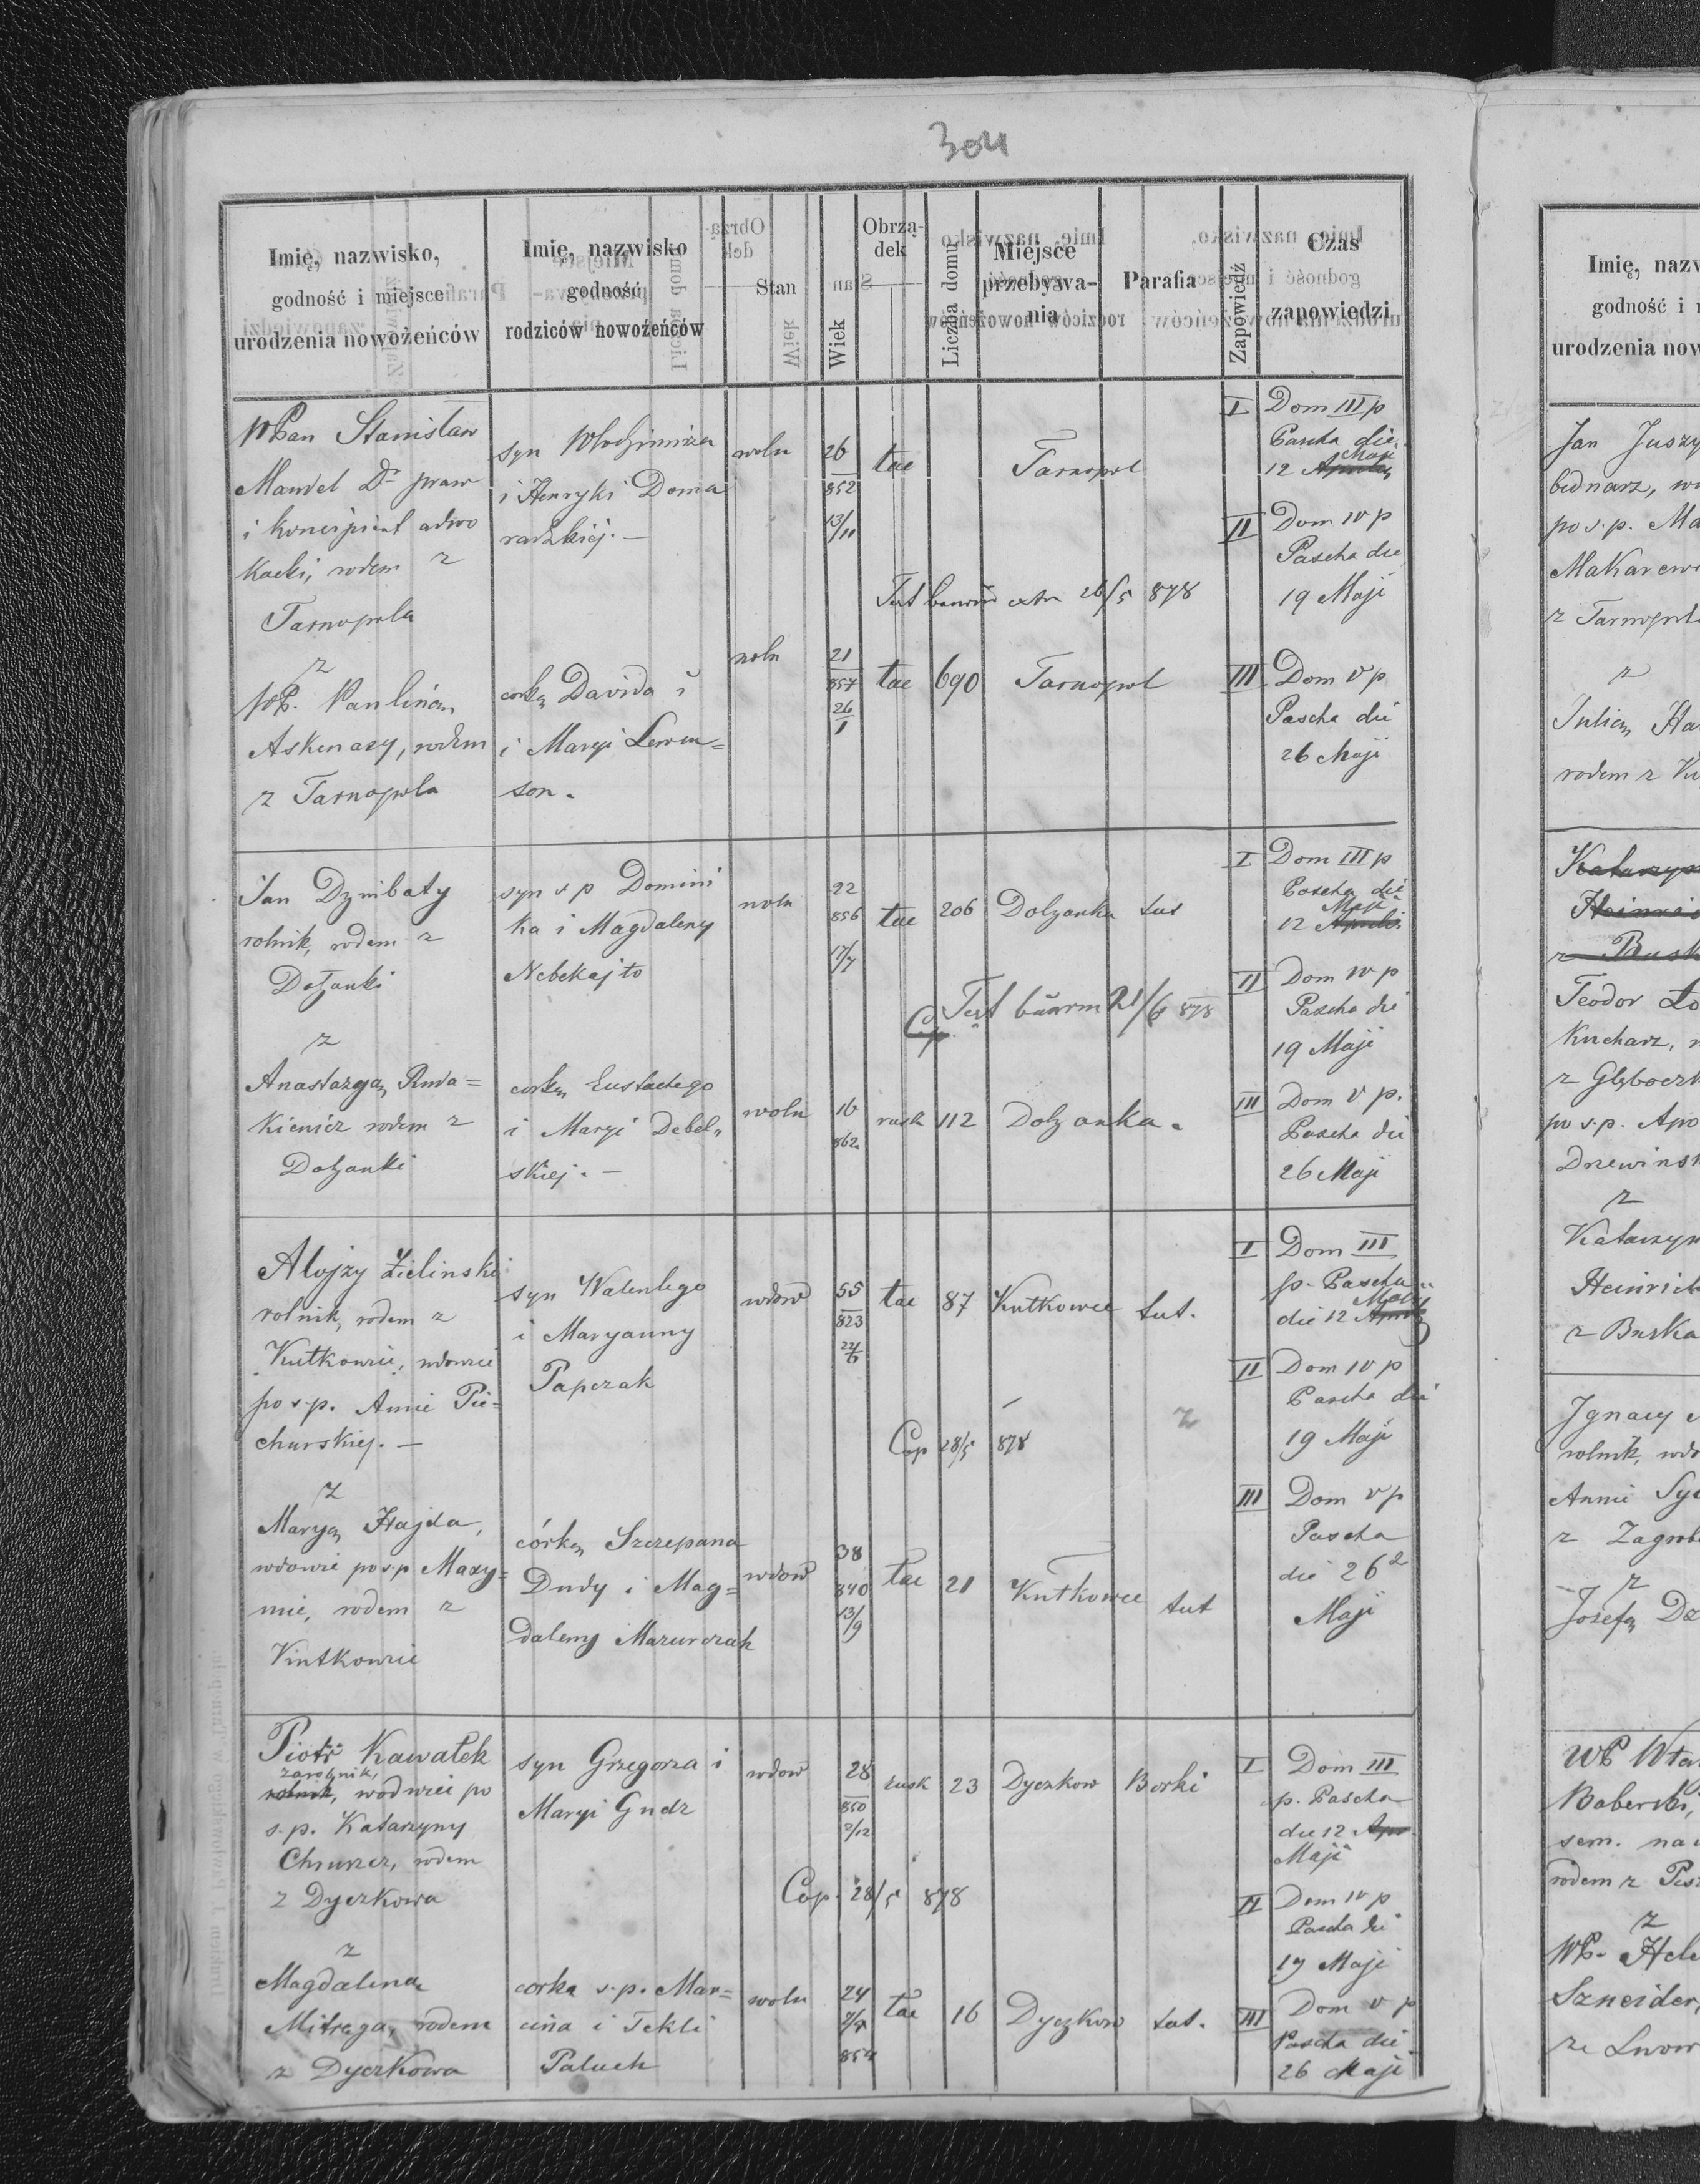 304
Imię, nazwisko,
godność i miejsce
urodzenia nowożeńców
Imię, nazwisko
godność
rodziców nowożeńców
Stan
Wiek
Obrzą-
dek
Liczba domu
Miejsce
przebywa-
nia
Parafia
Zapowiedź
Czas
zapowiedzi
WPan Stanisław
Mandel Dr praw
i koncipient adwo
kacki, rodem z
Tarnopola
syn Włodzimirza
i Henryki Doma
radzkiej. —
woln
26
852
13/11
łac
Tarnopol
I Dom III p
Pascha die
Maji
12 Aprilis
II Dom IV p
Pascha die
19 Maji
Test bannor extr 26/5 878
z
WP. Pauliną
Askenazy, rodem
z Tarnopola
corką Davida i
i Maryi Lewen=
son.
woln
21
857
26
1
łac
690
Tarnopol
III Dom V p
Pascha die
26 Maji
Jan Dzmibaty
rolnik, rodem z
Dołzanki
syn s p Domini
ka i Magdaleny
Nebekajto
woln
22
856
17/7
łac
206
Dolzanka
tut
I Dom III p
Pascha die
Maji
12 Aprilis
II Dom IV p
Pascha die
19 Maji
Cop. Test bannorum 21/6 878
z
Anastazyą Ruda=
kiewicz rodem z
Dołzanki
corką Eustachego
i Maryi Debel=
skiej. —
woln
16
862
rusk
112
Dolzanka.
III Dom V p.
Pascha die
26 Maji
Alojzy Zielinski
rolnik, rodem z
Kutkowiec, wdowiec
po s.p. Annie Pie=
churskiej. —
syn Walentego
i Maryanny
Papczak
wdow
55
823
22/6
łac
87
Kutkowce
tut.
I Dom III
p. Pascha
Maji
die 12 Apr
II Dom IV p
Pascha die
19 Maji
Cop 28/5 878
z
Maryą Hajda,
wdowie po s.p Maxy=
mie, rodem z
Kutkowiec
córką Szczepana
Dudy i Mag=
daleny Mazurczak
wdow
38
840
13/9
łac
21
Kutkowce
tut
III Dom V p
Pascha
die 26
Maji
Piotr Kawałek
zarobnik,
rolnik, wdowiec po
s.p. Katarzyny
Chruszcz, rodem
z Dyczkowa
syn Grzegorza i
Maryi Gudz
wdow
28
850
2/12
rusk
23
Dyczkow
Borki
I Dom III
p. Pascha
die 12 Apr
Maji
II Dom IV p
Pascha die
19 Maji
Cop. 28/5 878
z
Magdalena
Mitręga, rodem
z Dyczkowa
corka s.p. Mar=
cina i Tekli
Paluch
woln
24
854
łac
16
Dyczkow
tut.
III Dom V p
Pascha die
26 Maji
Imię, nazw
godność i
urodzenia now
Jan Juszy
bednarz, w
po s.p. Ma
Makarew
z Tarnopol
z
Julią Ha
rodem z
Katarzyn
Heinric
z Busk
Teodor Ło
kucharz,
z Głęboczk
po s.p. Apo
Drzewinsk
z
Katarzyn
Heinrich
z Buska
Ignacy
rolnik, wdo
Annie Syd
z Zagrob
z
Jozefą Dz
WP Wła
Boberski,
sem. na
rodem z
z
WP. Hele
Szneider,
ze Lwow